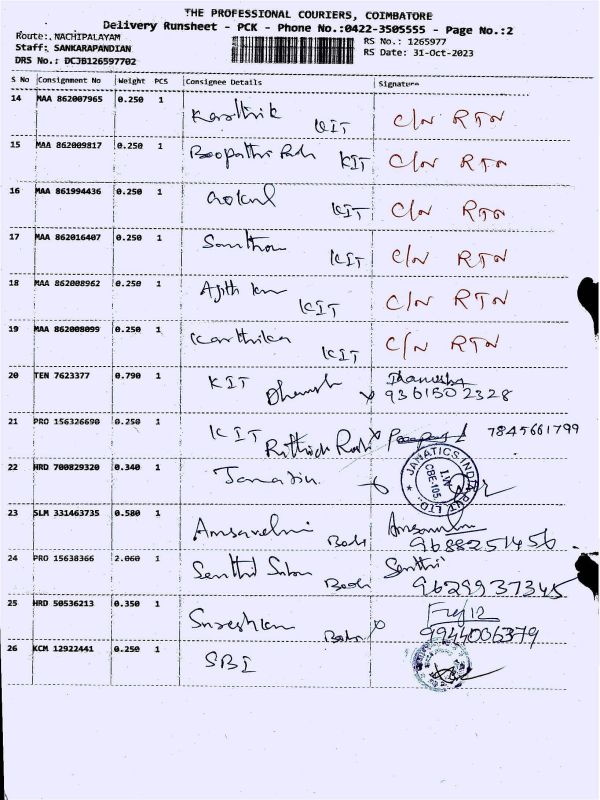 THE PROFESSIONAL COURIERS, COIMBATORE
Delivery Runsheet - PCK - Phone No.:0422-3505555 - Page No.:2
Route:. NACHIPALAYAM
RS No.: 1265977
Staff: SANKARAPANDIAN
RS Date: 31-Oct-2023
DRS No.: DCJB126597702
S No Consignment No Weight PCS Consignee Details Signature
14 MAA 862007965 0.250 1 Karthik KIT C/N RTN
15 MAA 862009817 0.250 1 Boopathi KIT C/N RTN
16 MAA 861994436 0.250 1 Gokul KIT C/N RTN
17 MAA 862016407 0.250 1 KIT C/N RTN
18 MAA 862008962 0.250 1 Ajith KIT C/N RTN
19 MAA 862008099 0.250 1 Karthika KIT C/N RTN
20 TEN 7623377 0.790 1 KIT 9361502328
21 PRO 156326690 0.250 1 KIT 7845661799
22 HRD 700829320 0.340 1 JANATICS INDIA PVT LTD. CBE-105.
23 SLM 331463735 0.580 1 9688251456
24 PRO 15638366 2.060 1 Senthil 9629937345
25 HRD 50536213 0.350 1 9944006379
26 KCM 12922441 0.250 1 SBI